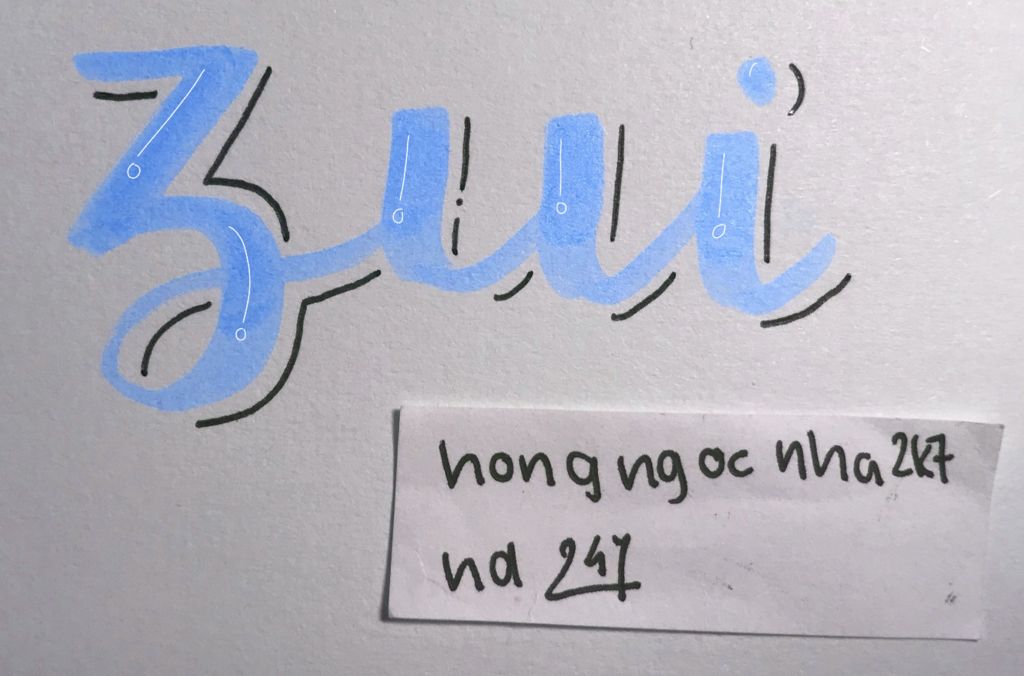 Zui
hongngọc nha2k7
nd 247